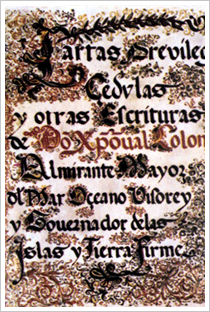 Cartas Previleg
Cedulas
y otras Escrituras
de Dõ Xpõual Colon
Almirante Mayor
dl Mar Oceano Visorey
y Governador de las
Islas y Tierra Firme